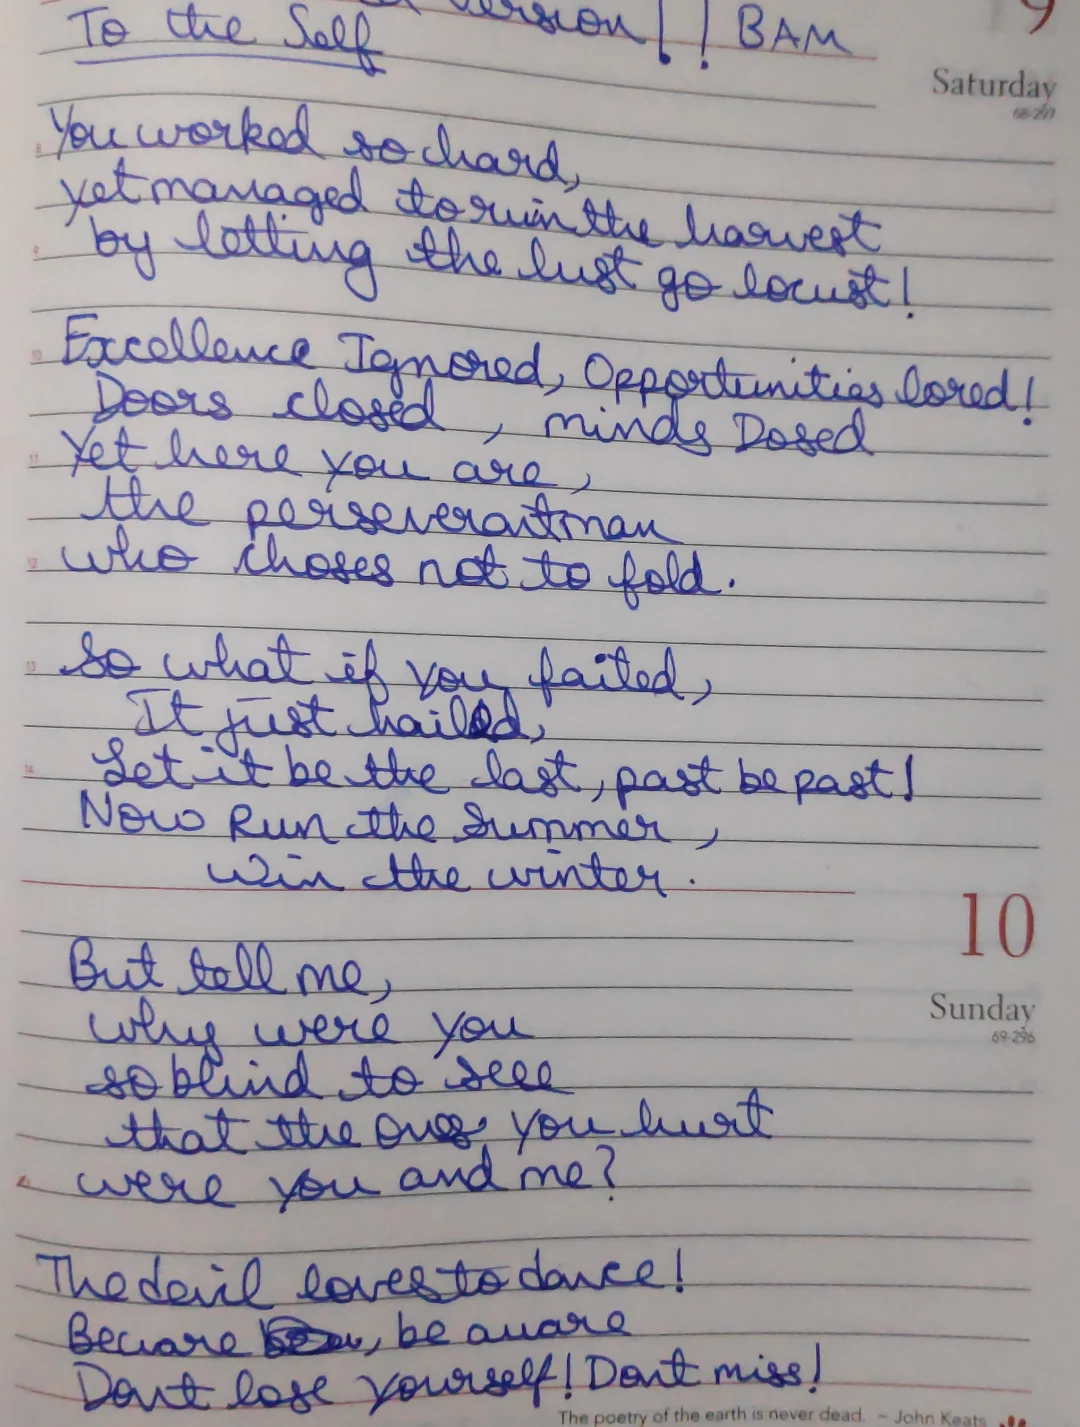 version!! BAM
9
To the Self
Saturday
You worked so hard,
yet managed to ruin the harvest
by letting the lust go locust!
Excellence Ignored, Opportunities lored!
Doors closed, minds Dosed
Yet here you are,
the perseverantman
who choses not to fold.
So what if you failed,
It just hailed,
Let it be the last, past be past!
Now Run the Summer,
Win the winter.
10
But tell me,
Sunday
why were you
69-296
so blind to seee
that the ones you hurt
were you and me?
The devil loves to dance!
Beware, be aware
Dont lose yourself! Dont miss!
The poetry of the earth is never dead. ~ John Keats